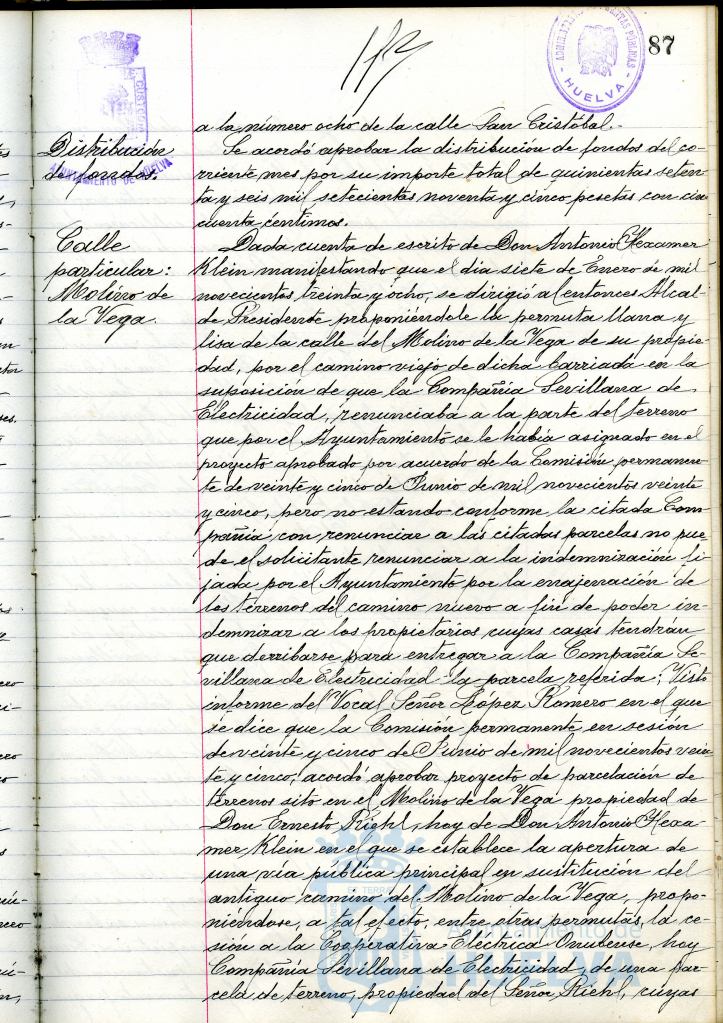 87
ADMINISTRACIÓN DE RENTAS PÚBLICAS
- HUELVA -
AYUNTAMIENTO DE HUELVA
a la número ocho de la calle San Cristóbal.-
Distribución
de fondos.
Se acordó aprobar la distribución de fondos del co-
rriente mes por su importe total de quinientas seten-
ta y seis mil setecientas noventa y cinco pesetas con cin
cuenta céntimos.
Calle
particular:
Molino de
la Vega.
Dada cuenta de escrito de Don Antonio Hexamer
Klein manifestando que el día siete de Enero de mil
novecientos treinta y ocho, se dirigió al entonces Alcal-
de Presidente proponiéndole la permuta llana y
lisa de la calle del Molino de la Vega de su propie-
dad, por el camino viejo de dicha barriada en la
suposición de que la Compañía Sevillana de
Electricidad, renunciaba a la parte del terreno
que por el Ayuntamiento se le había asignado en el
proyecto aprobado por acuerdo de la Comisión permanen-
te de veinte y cinco de Junio de mil novecientos veinte
y cinco, pero no estando conforme la citada Com-
pañía con renunciar a las citadas parcelas no pue-
de el solicitante renunciar a la indemnización fi-
jada por el Ayuntamiento por la enajenación de
los terrenos del camino nuevo a fin de poder in-
demnizar a los propietarios cuyas casas tendrán
que derribarse para entregar a la Compañía Se-
villana de Electricidad la parcela referida; Visto
informe del Vocal Señor López Romero en el que
se dice que la Comisión permanente en sesión
de veinte y cinco de Junio de mil novecientos vein
te y cinco, acordó aprobar proyecto de parcelación de
terrenos sito en el Molino de la Vega propiedad de
Don Ernesto Riehl, hoy de Don Antonio Hexa-
mer Klein en el que se establece la apertura de
una vía pública principal en sustitución del
antiguo camino del Molino de la Vega, propo-
niéndose, a tal efecto, entre otras permutas, la ce-
sión a la Cooperativa Eléctrica Onubense, hoy
Compañía Sevillana de Electricidad, de una par-
cela de terreno, propiedad del Señor Riehl, cuyas
Ayuntamiento de
HUELVA